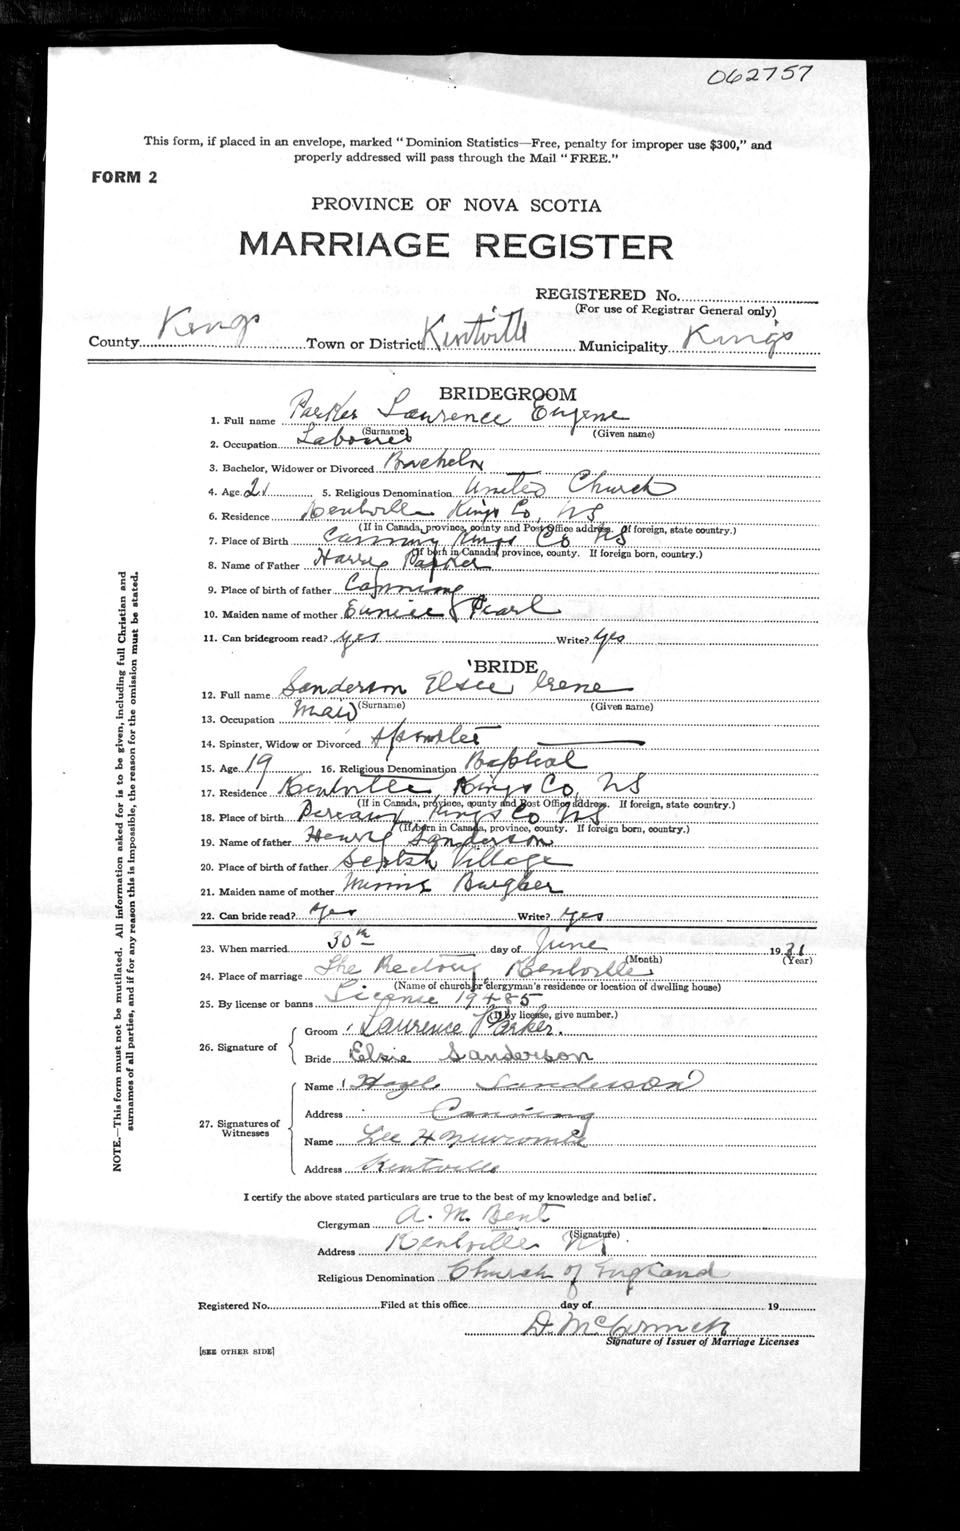 062757
This form, if placed in an envelope, marked “ Dominion Statistics—Free, penalty for improper use $300,” and
properly addressed will pass through the Mail “ FREE.”
FORM 2
PROVINCE OF NOVA SCOTIA
MARRIAGE REGISTER
REGISTERED No.
(For use of Registrar General only)
County Kings Town or District Kentville Municipality Kings
BRIDEGROOM
1. Full name Parker Lawrence Eugene
(Surname) (Given name)
2. Occupation Labourer
3. Bachelor, Widower or Divorced Bachelor
4. Age 21 5. Religious Denomination United Church
6. Residence Kentville Kings Co, NS
(If in Canada, province, county and Post Office address. If foreign, state country.)
7. Place of Birth Canning Kings Co NS
(If born in Canada, province, county. If foreign born, country.)
8. Name of Father Harry Parker
9. Place of birth of father Canning
10. Maiden name of mother Eunice Pearl
11. Can bridegroom read? yes Write? yes
BRIDE
12. Full name Sanderson Elsie Irene
(Surname) (Given name)
13. Occupation Maid
14. Spinster, Widow or Divorced Spinster
15. Age 19 16. Religious Denomination Baptist
17. Residence Kentville Kings Co, NS
(If in Canada, province, county and Post Office address. If foreign, state country.)
18. Place of birth Pereaux Kings Co NS
(If born in Canada, province, county. If foreign born, country.)
19. Name of father Henry Sanderson
20. Place of birth of father Scotch Village
21. Maiden name of mother
22. Can bride read? yes Write? yes
23. When married 30th day of June 1931
(Month) (Year)
24. Place of marriage The Rectory, Kentville
(Name of church or clergyman's residence or location of dwelling house)
25. By license or banns License 19485
(If by license, give number.)
26. Signature of Groom Laurence Parker.
Bride Elsie Sanderson
27. Signatures of Witnesses
Name Hazel Sanderson
Address Canning
Name Lee H Newcombe
Address Kentville
I certify the above stated particulars are true to the best of my knowledge and belief.
Clergyman A. M. Bent
(Signature)
Address Kentville NS
Religious Denomination Church of England
Registered No. Filed at this office day of 19
D. McCormick
Signature of Issuer of Marriage Licenses
[SEE OTHER SIDE]
NOTE.—This form must not be mutilated. All information asked for is to be given, including full Christian and
surnames of all parties, and if for any reason this is impossible, the reason for the omission must be stated.